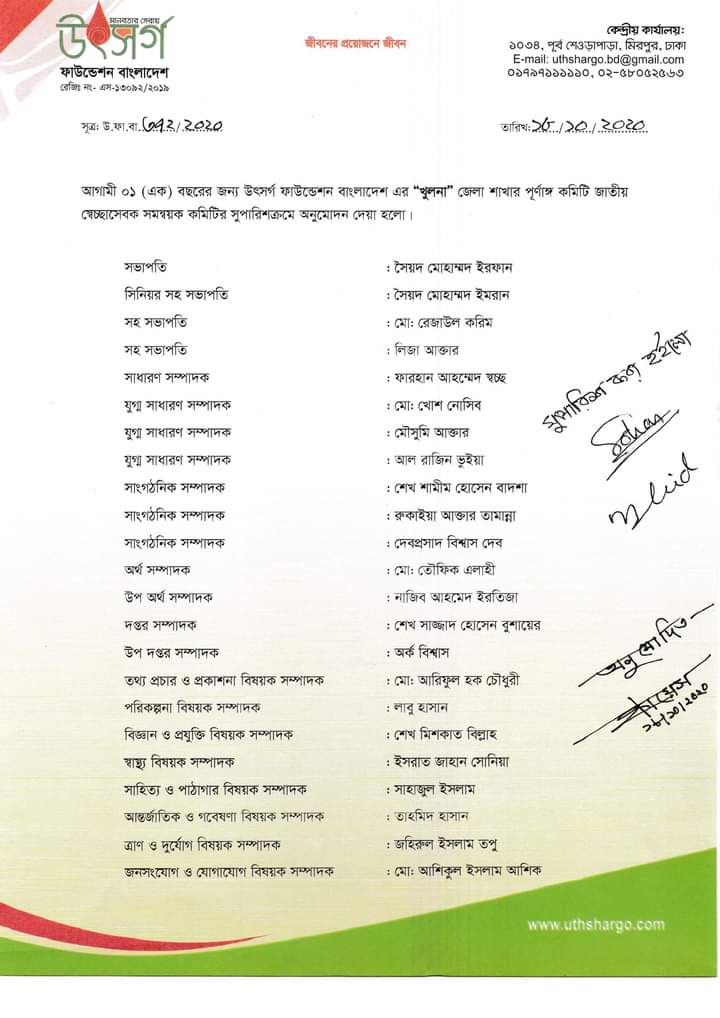 মানবতার সেবায়
উৎসর্গ
ফাউন্ডেশন বাংলাদেশ
রেজিঃ নং- এস-১৩০৯২/২০১৯
জীবনের প্রয়োজনে জীবন
কেন্দ্রীয় কার্যালয়:
১০৩৪, পূর্ব শেওড়াপাড়া, মিরপুর, ঢাকা
E-mail: uthshargo.bd@gmail.com
০১৭৯৭১১১১১০, ০২-৫৮০৫২৫৬৩
সূত্র: উ.ফা.বা. ৩৭২/২০২০
তারিখ: ১৮/১০/২০২০
আগামী ০১ (এক) বছরের জন্য উৎসর্গ ফাউন্ডেশন বাংলাদেশ এর “খুলনা” জেলা শাখার পূর্ণাঙ্গ কমিটি জাতীয়
স্বেচ্ছাসেবক সমন্বয়ক কমিটির সুপারিশক্রমে অনুমোদন দেয়া হলো।
সভাপতি : সৈয়দ মোহাম্মদ ইরফান
সিনিয়র সহ সভাপতি : সৈয়দ মোহাম্মদ ইমরান
সহ সভাপতি : মো: রেজাউল করিম
সহ সভাপতি : লিজা আক্তার
সাধারণ সম্পাদক : ফারহান আহম্মেদ স্বচ্ছ
যুগ্ম সাধারণ সম্পাদক : মো: খোশ নোসিব
যুগ্ম সাধারণ সম্পাদক : মৌসুমি আক্তার
যুগ্ম সাধারণ সম্পাদক : আল রাজিন ভুইয়া
সাংগঠনিক সম্পাদক : শেখ শামীম হোসেন বাদশা
সাংগঠনিক সম্পাদক : রুকাইয়া আক্তার তামান্না
সাংগঠনিক সম্পাদক : দেবপ্রসাদ বিশ্বাস দেব
অর্থ সম্পাদক : মো: তৌফিক এলাহী
উপ অর্থ সম্পাদক : নাজিব আহমেদ ইরতিজা
দপ্তর সম্পাদক : শেখ সাজ্জাদ হোসেন বুশায়ের
উপ দপ্তর সম্পাদক : অর্ক বিশ্বাস
তথ্য প্রচার ও প্রকাশনা বিষয়ক সম্পাদক : মো: আরিফুল হক চৌধুরী
পরিকল্পনা বিষয়ক সম্পাদক : লাবু হাসান
বিজ্ঞান ও প্রযুক্তি বিষয়ক সম্পাদক : শেখ মিশকাত বিল্লাহ
স্বাস্থ্য বিষয়ক সম্পাদক : ইসরাত জাহান সোনিয়া
সাহিত্য ও পাঠাগার বিষয়ক সম্পাদক : সাহাজুল ইসলাম
আন্তর্জাতিক ও গবেষণা বিষয়ক সম্পাদক : তাহমিদ হাসান
ত্রাণ ও দুর্যোগ বিষয়ক সম্পাদক : জহিরুল ইসলাম তপু
জনসংযোগ ও যোগাযোগ বিষয়ক সম্পাদক : মো: আশিকুল ইসলাম আশিক
সুপারিশ করা হইলো
Sohan
অনুমোদিত
১৮/১০/২০২০
www.uthshargo.com